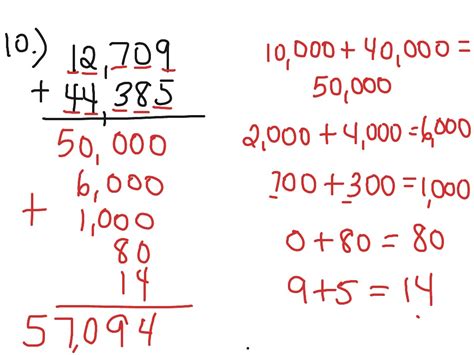 10.) 12,709
+ 44,385
50,000
6,000
+ 1,000
80
14
57,094
10,000 + 40,000 =
50,000
2,000 + 4,000 = 6,000
700 + 300 = 1,000
0 + 80 = 80
9 + 5 = 14